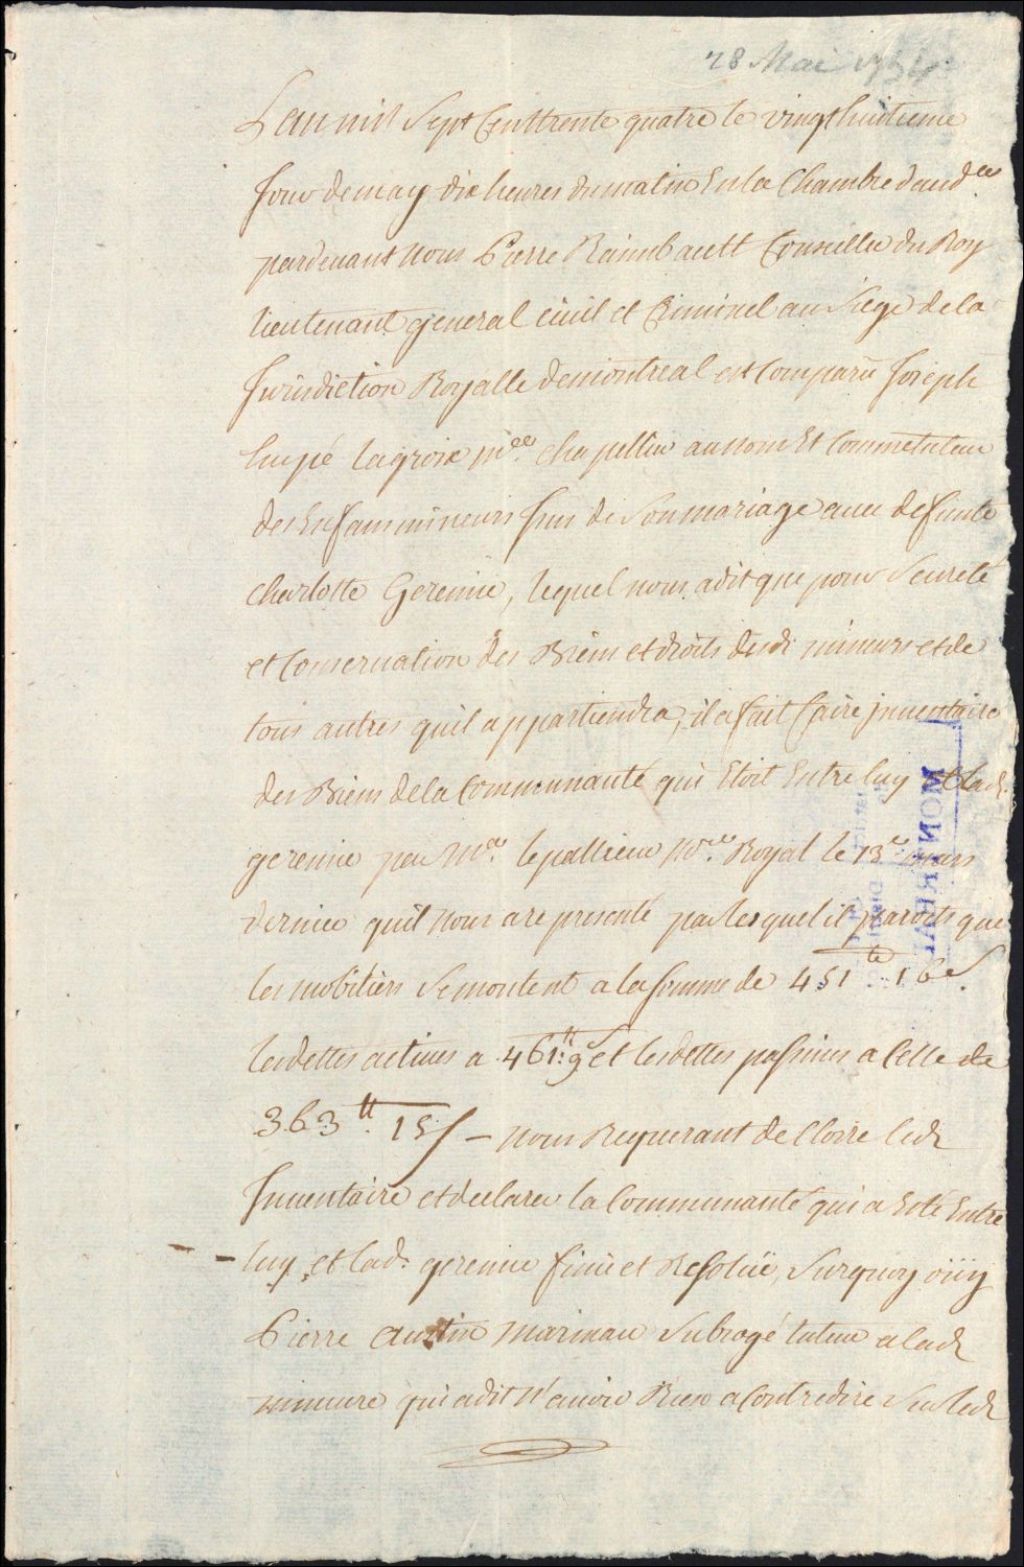 28 Mai 1734
Lan mil Sept Cent trente quatre le vingt huitieme
Jour de may dix heures du matin En la Chambre daud.ce
pardevant Nous Pierre Raimbault Conseiller du Roy
lieutenant general civil et Criminel au Siege de la
Jurisdiction Royalle de montreal est Comparu Joseph
hupé lagroix m.e chapellier au nom Et Comme tuteur
des Enfans mineurs Issus de Son mariage avec defunte
charlotte Geremie, lequel nous a dit que pour Seureté
et Conservation des Biens et droits desd. mineurs et de
tous autres qu'il appartiendra, il a fait faire Inventaire
des Biens de la Communauté qui Etoit Entre luy et lad.
geremie par M.e lepallieur N.re Royal le 13.e mars
dernier quil nous a representé par lesquel il paroits que
les mobiliers Se montent a la somme de 451tt 16s.
les dettes actives a 461tt 9s et les dettes passives a Celle de
363tt 15s — nous Requerant de Clorre led.
Inventaire et declarer la Communauté qui a Esté Entre
luy, et lad. geremie finie et Resolüe, Surquoy oüy
Pierre marineau Subrogé tuteur a lad.
mineure qui a dit N'avoir Rien a Contredire Sur led.
MONTREAL